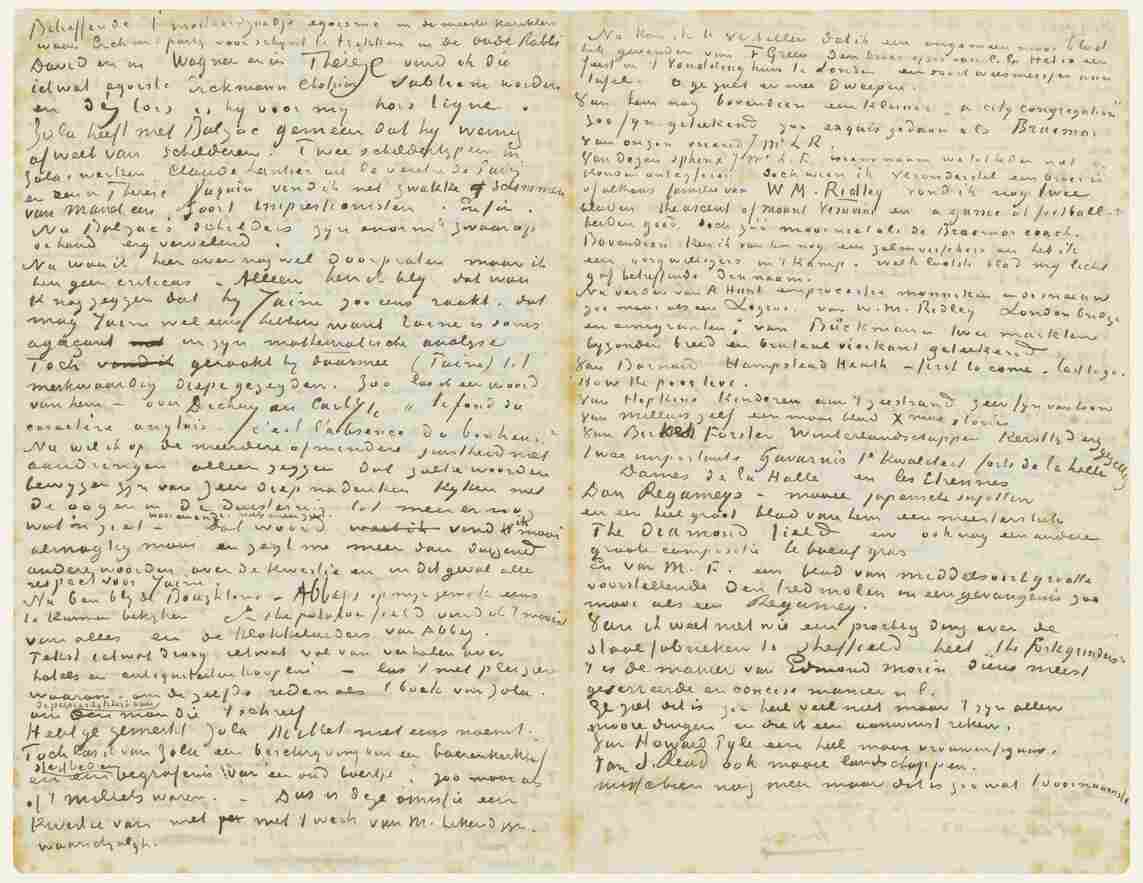 Betreffende 't egoisme in de meeste karakters
waar Erckmann party voor schynt te trekken in de oude Rabbi
David en in Wagner en in Thérèse vind ik die
ietwat egoiste Erckmann Chatrian sublieme worden
en dès lors is hy voor my hors ligne.
Zola heeft met Balzac gemeen dat hy weinig
afweet van schilderen. Twee schilderstypen in
Zola's werken Claude Lantier uit le ventre de Paris
en een in Thérèse Raquin vind ik net zwakke schimmen
van Manet een soort impressionisten. Enfin.
Nu Balzac's schilders zyn enorm zwaar op
de hand erg vervelend.
Nu wou ik hier over nog wel doorpraten maar ik
ben geen criticus. Alleen ben ik bly dat wou
ik nog zeggen dat hy Taine zoo eens raakt. dat
mag Taine wel eens hebben want Taine is soms
agaçant in zyn mathematische analyse
Toch geraakt hy daarmee (Taine) tot
merkwaardig diepe gezegden. Zoo las ik een woord
van hem – over Dickens en Carlyle „le fond du
caractère anglais – c'est l'absence du bonheur."
Nu wil ik op de meerdere of mindere juistheid niet
aandringen alleen zeggen dat zulke woorden
bewyzen zyn van zeer diep nadenken kyken met
de oogen in de duisternis tot men er nog
wat in ziet – waar anderen niets meer zien. Dat woord vind ik mooi
almagtig mooi en zegt me meer dan duizend
andere woorden over de kwestie en in dit geval alle
respect voor Taine.
Nu ben bly de Boughtons – Abbeys op myn gemak eens
te kunnen bekyken. In the potatoe field vond ik 't mooist
van alles en de klokkeluiders van Abbey.
Tekst ietwat droog ietwat vol van verhalen over
hotels en antiquiteitenkoopers – las 't met plezier
waarom – om dezelfde reden als 't boek van Zola.
om de persoonlykheid van den man die 't schreef
Hebt ge gemerkt Zola Millet niet eens noemt.
Toch las ik van Zola een beschryving van een boerenkerkhof
een sterfbed en een begrafenis van een oud boertje. zoo mooi als
of 't Millets waren. – Dus is deze omissie een
kwestie van niet met 't werk van M. bekend zyn
waarschynlyk.
Nu kan ik U vertellen dat ik een ongemeen mooi blad
heb gevonden van T Green den broer
feest in 't Vondelinghuis te Londen een soort weesmeisjes aan
tafel. o ge zoudt er mee dweepen.
Van hem nog bovendien een kleiner „a city congregation"
zoo fyn geteekend zoo exquis gedaan als Braemar
van onzen vriend / Mr L.R.
Van dezen sphinx / Mr L.R. wiens naam we tot heden niet
konden ontcyferen doch wien ik veronderstel een broer is
of althans familie van W.M. Ridley vond ik nog twee
bladen the ascent of mount Vesuvius en a game at football –
beiden goed. doch zoo mooi niet als de Braemar coach.
Bovendien heb ik van hem nog een
een in 't kamp. welk laatste blad my licht
gaf betreffende den naam.
Nu verder van A Hunt een processie monniken in de sneeuw
zoo mooi als een Legros. van W.M. Ridley London bridge
en emigranten, van Buckmann twee markten
byzonder breed en brutaal vierkant geteekend
Van Barnard Hampstead Heath – first to come – last to go.
How the poor live.
Van Hopkins Kinderen aan 't zeestrand zeer fyn van toon
Van Millais zelf een mooi blad Xmas stories
Van Birket Forster Winterlandschappen Kersttyd erg gezellig
Twee importante Gavarnis 1e kwaliteit forts de la halle
Dames de la Halle en les Etrennes
Dan Regameys – mooie japansche suyetten
en een heel groot blad van hem een meesterstuk
The Diamond field en ook nog een andere
groote compositie le boeuf gras
En van M. F. een blad van middelsoort grootte
voorstellende den tredmolen in een gevangenis zoo
mooi als een Regamey.
Van ik weet niet wie een prachtig ding over de
staal fabrieken te Sheffield heet 'The Forkgrinders'
't is de manier van Edmond Morin diens meest
geserreerde en concise manier n.l.
Ge ziet dit is zoo heel veel niet maar 't zyn allen
mooie dingen en die ik een aanwinst reken.
Van Howard Pyle een heel mooi vrouwenfiguur.
Van S. Read ook mooie landschappen.
misschien nog meer maar dit is zoo wat 't voornaamste